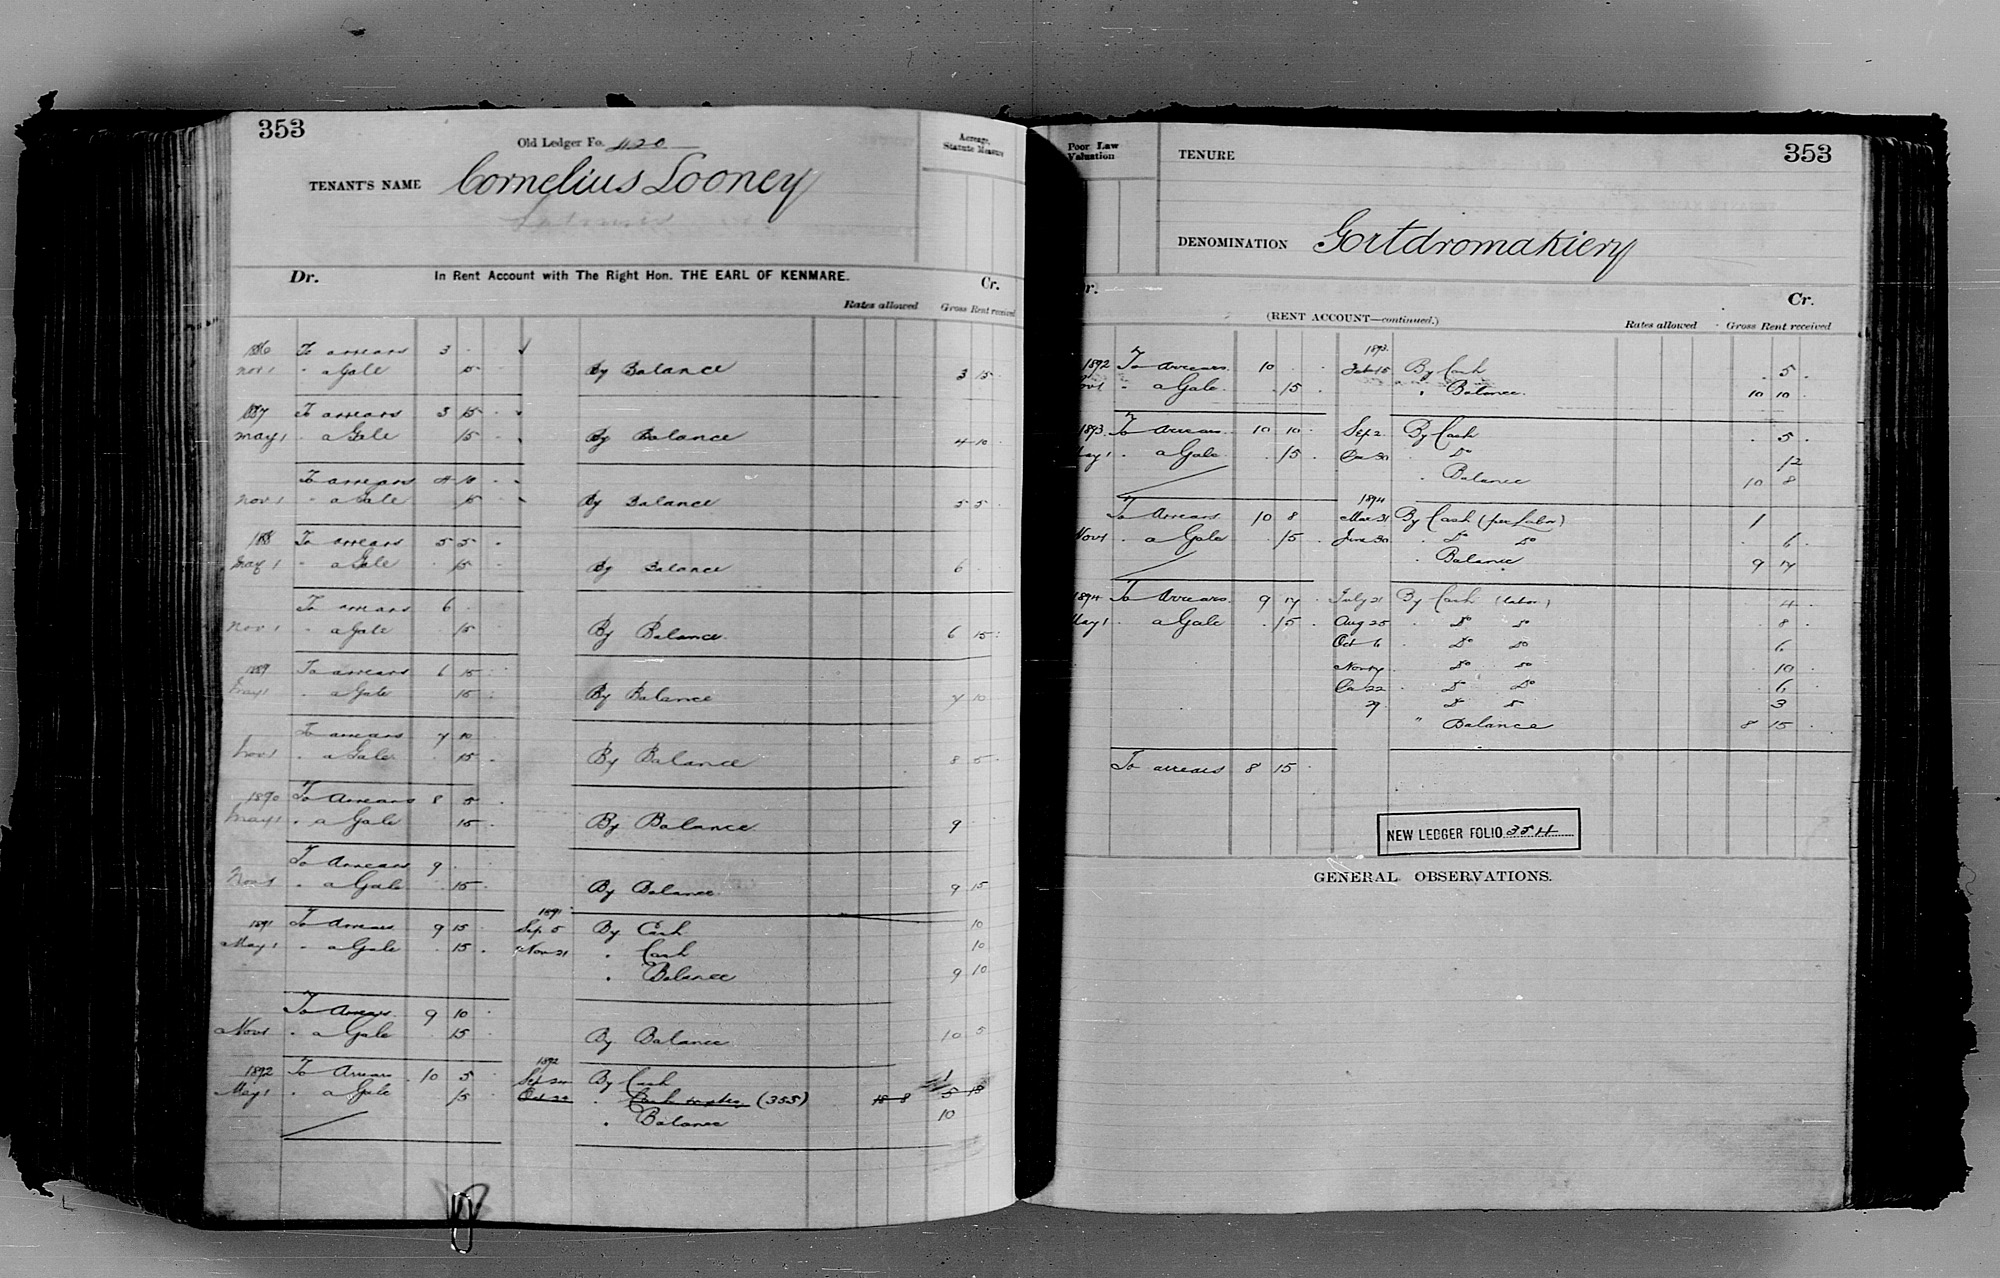 353
Old Ledger Fo. 420
TENANT'S NAME Cornelius Looney
Acreage, Statute Measure
Dr. In Rent Account with The Right Hon. THE EARL OF KENMARE. Cr.
Rates allowed Gross Rent received
1886 To arrears 3 . .
Nov 1 " a Gale 15 . By Balance 3 15 .
1887 To arrears 3 15 .
May 1 " a Gale 15 . By Balance 4 10 .
To arrears 4 10 .
Nov 1 " a Gale 15 . By Balance 5 5 .
1888 To arrears 5 5 .
May 1 " a Gale . 15 . By Balance 6 .
To arrears 6 .
Nov 1 " a Gale . 15 . By Balance 6 15 .
1889 To arrears 6 15 .
May 1 " a Gale 15 . By Balance 7 10
To arrears 7 10
Nov 1 " a Gale 15 . By Balance 8 5 .
1890 To Arrears 8 5 .
May 1 " a Gale 15 . By Balance 9
To Arrears 9 .
Nov 1 " a Gale . 15 . By Balance 9 15
1891 To Arrears 9 15 . 1891 Sep 5 By Cash 10
May 1 " a Gale . 15 . " Nov 21 " Cash 10
" Balance 9 10
To Arrears 9 10 .
Nov 1 " a Gale . 15 . By Balance 10 5
1892 To Arrears . 10 5 . 1892 Sep 24 By Cash 1
May 1 " a Gale 15 . Oct 22 " (355) 18 8 5 18
" Balance 10
353
Poor Law Valuation
TENURE
DENOMINATION Gortdromakiery
Dr. Cr.
(RENT ACCOUNT—continued.)
Rates allowed Gross Rent received
1892 To Arrears 10 . . 1893. Feb 15 By Cash . 5 .
Nov 1 " a Gale . 15 . " Balance 10 10 .
1893 To Arrears 10 10 . Sep 2 By Cash . 5 .
May 1 " a Gale . 15 . Dec 30 " Do 12
" Balance 10 8
To Arrears 10 8 1894 Mar 31 By Cash (per Labor) 1
Nov 1 " a Gale . 15 . June 30 " Do Do . 6 .
" Balance 9 17
1894 To Arrears 9 17 . July 21 By Cash (labor) 4 .
May 1 " a Gale . 15 . Aug 25 " Do Do . 8 .
Oct 6 " Do Do 6
Nov 17 Do Do 10
Dec 22 " Do Do 6
29 Do Do 3
" Balance 8 15 .
To arrears 8 15 .
NEW LEDGER FOLIO 354
GENERAL OBSERVATIONS.